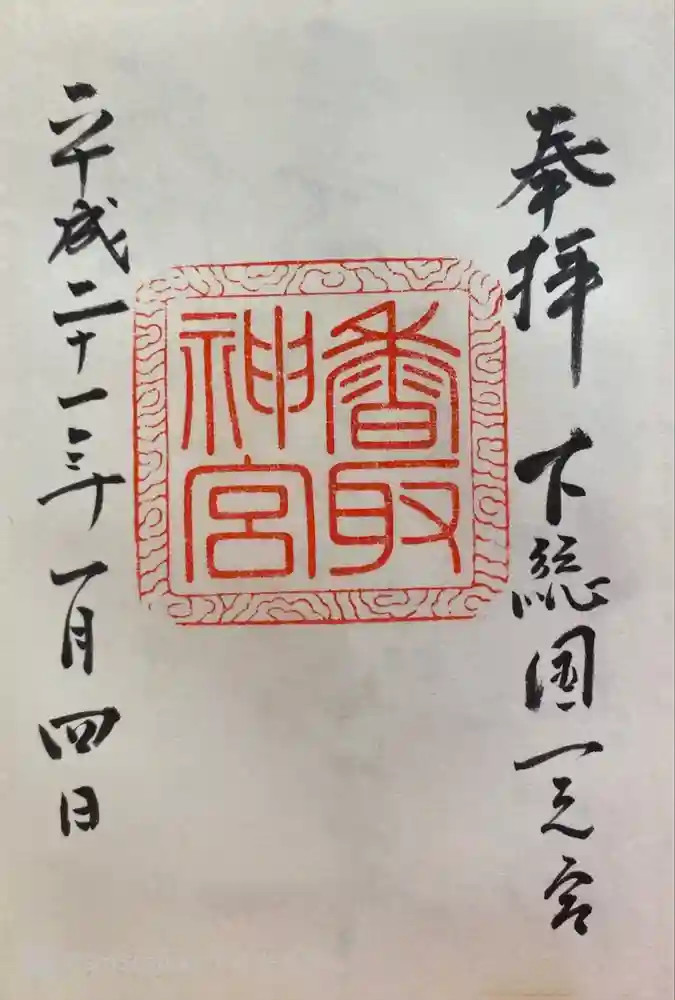 奉拝 下総国一之宮
香取
神宮
平成二十一年一月四日